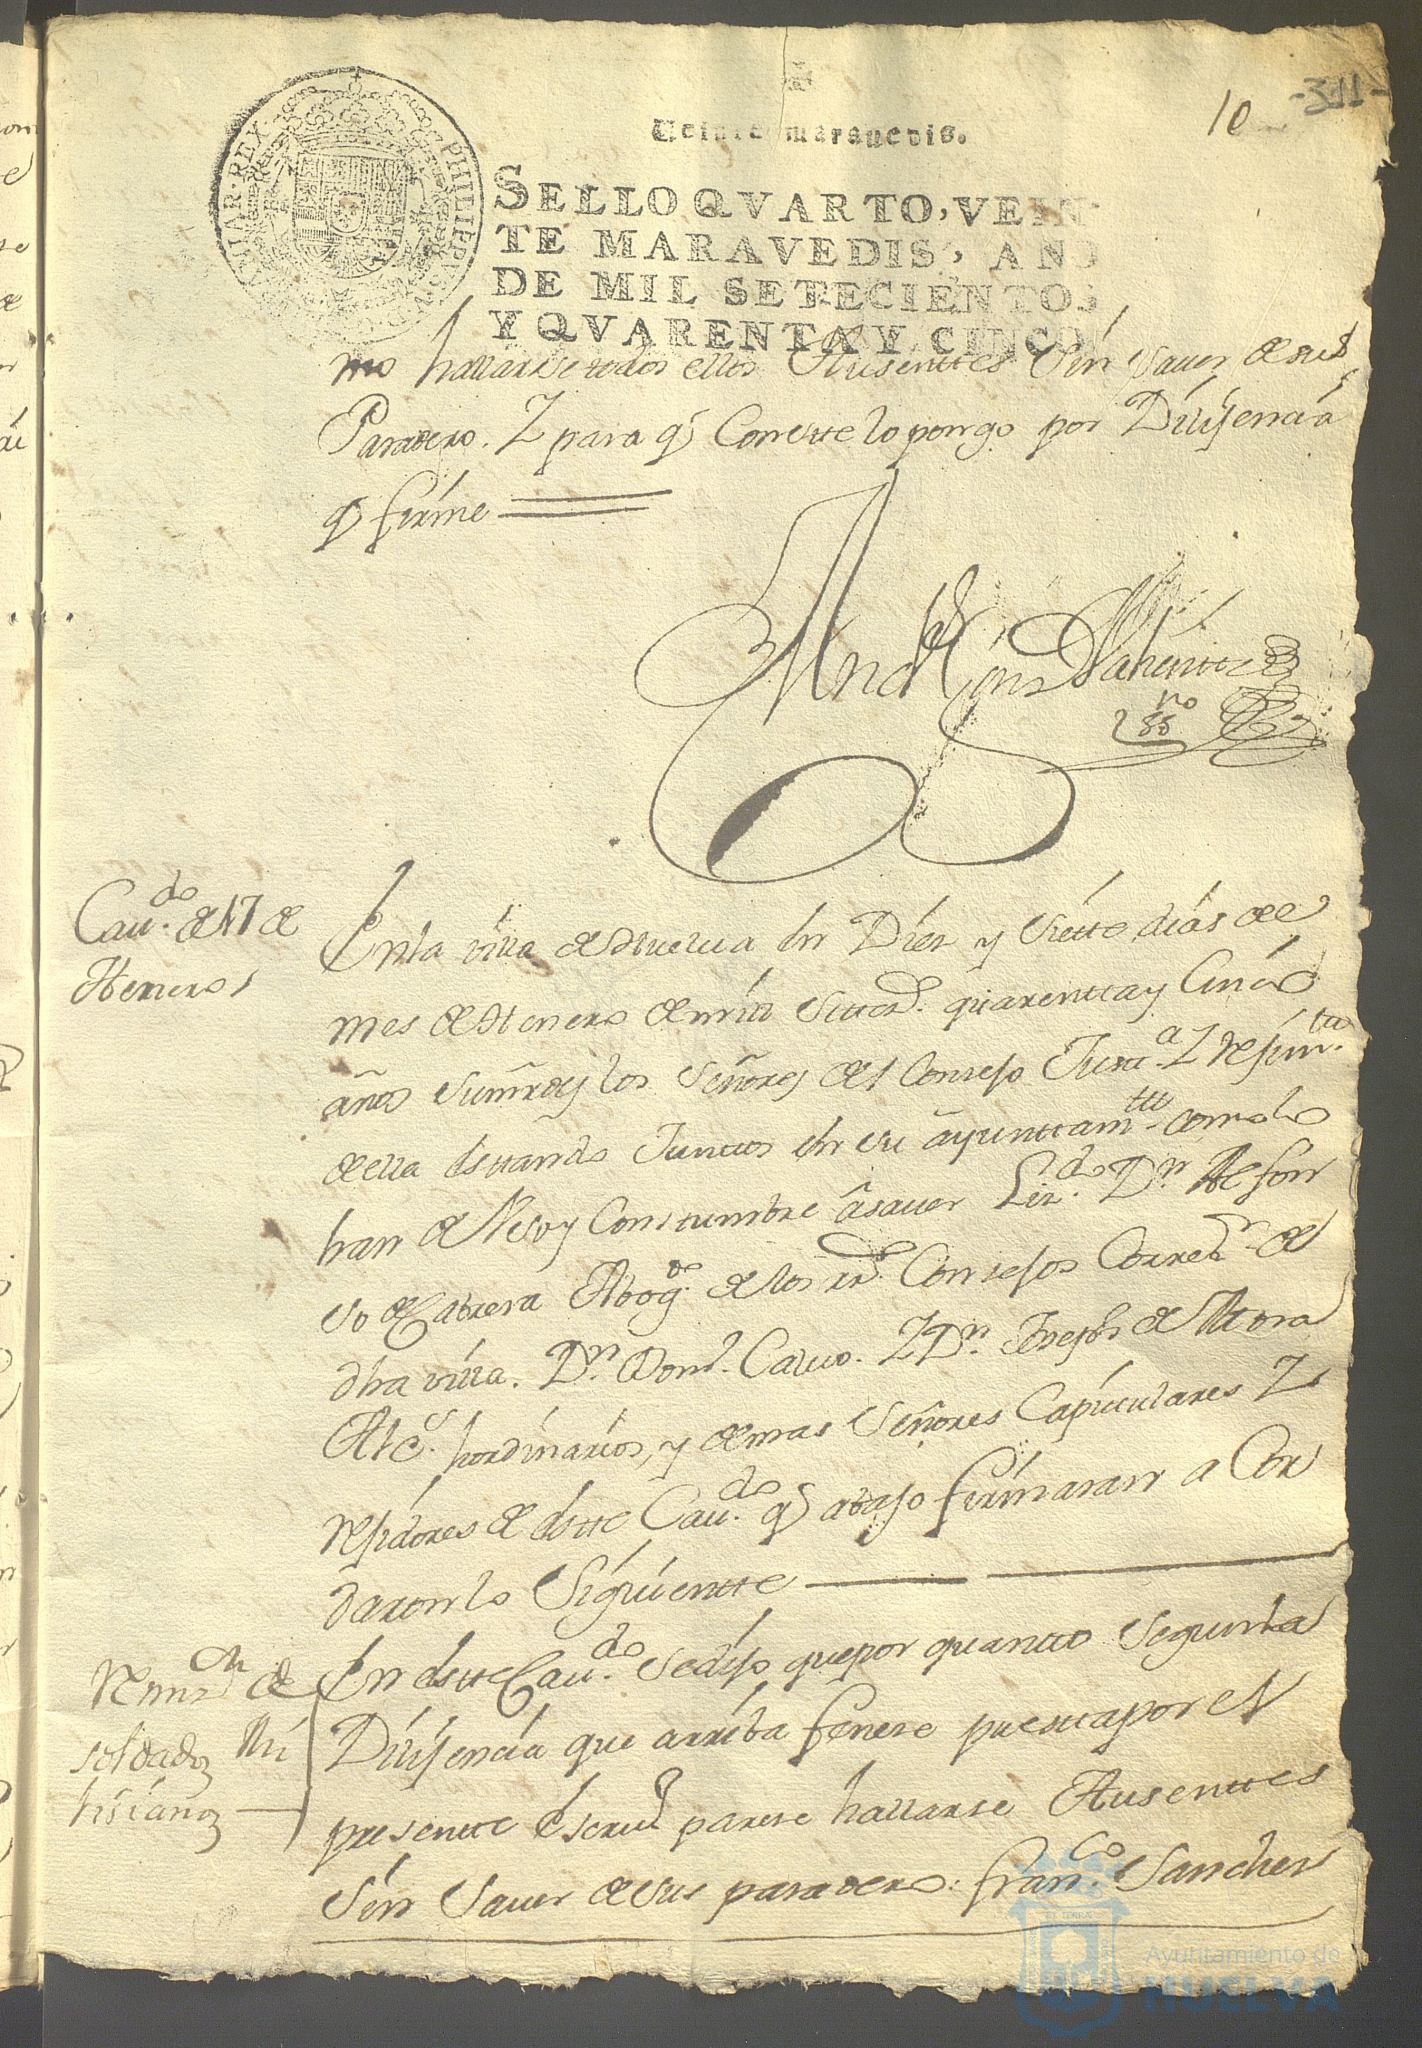 10 -311-
Veinte maravedis.
SELLO QVARTO, VEIN
TE MARAVEDIS, AÑO
DE MIL SETECIENTOS
Y QVARENTA Y CINCO
PHILIPPVS
REX
mo hallarse todos ellos Ausenttes sin saver de sus
Paradero. Y para q Conste lo pongo por Dilijencia
q firme
Cav.do de 17 de
Henero
En la villa de Huelva en Diez y Siette dias de el
mes de Henero de mill settec.s quarentta y Cinco
años sus mrds los Señores del Consejo Justt.a Y rejim.tto
de ella esttando Junttos en su ayunttam.tto como lo
han de Uso y Constumbre a saver Liz.do D.n Alfon
so de Cabrera Abog.do de los R.s Consejos Corre.r de
dha villa. D.n Dom.o Calvo. Y D.n Joseph de Mora
Alc.s hordinarios, y demas Señores Capittulares Y
rejidores de estte Cav.do q abajo firmaran a Cor
daron lo Siguientte
soldados Mi
lisianos
En estte Cav.do se dijo que por quantto segun la
Dilijencia que arriba fenese puesta por el
presentte Escrivº parese hallarse Ausenttes
sin saver de sus paradero: fran.co Sanches
Ayuntamiento de
HUELVA